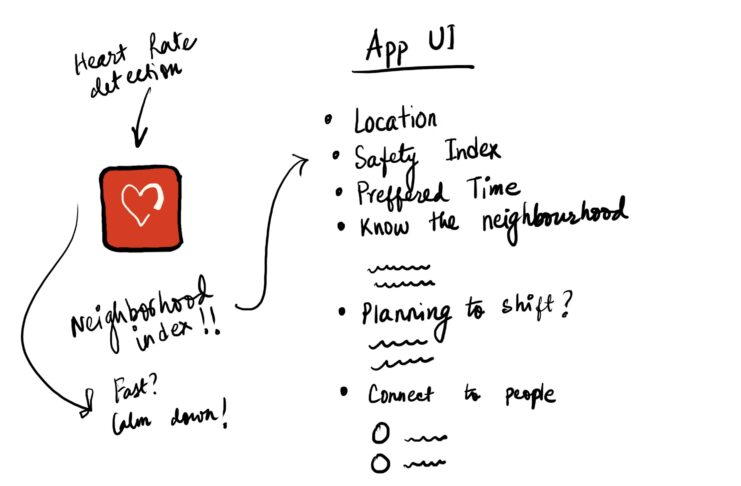 Heart Rate
detection
Neighborhood
index!!
Fast?
Calm down!
App UI
• Location
• Safety Index
• Preffered Time
• Know the neighbourshood
• Planning to shift?
• Connect to people